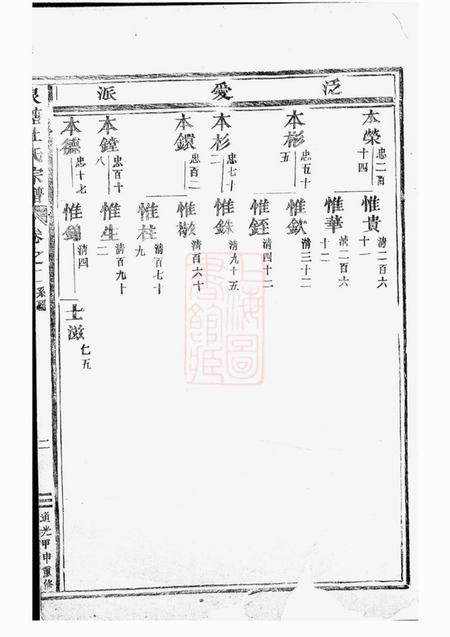 泛愛派
本榮 忠二百十四
惟貴 淸二百六十一
惟華 淸二百六十二
本彬 忠五十五
惟欽 淸三十二
惟銍 淸四十二
本杉 忠七十二
惟銖 淸九十五
本鐼 忠百二
惟 淸百六十
本鐘 忠百十八
惟柱 淸百七十九
惟生 淸百九十二
本德 忠十七
惟錦 淸四
士滋 仁五
杜氏宗譜 卷之二 系圖
二
道光甲申重修
上海圖書館藏